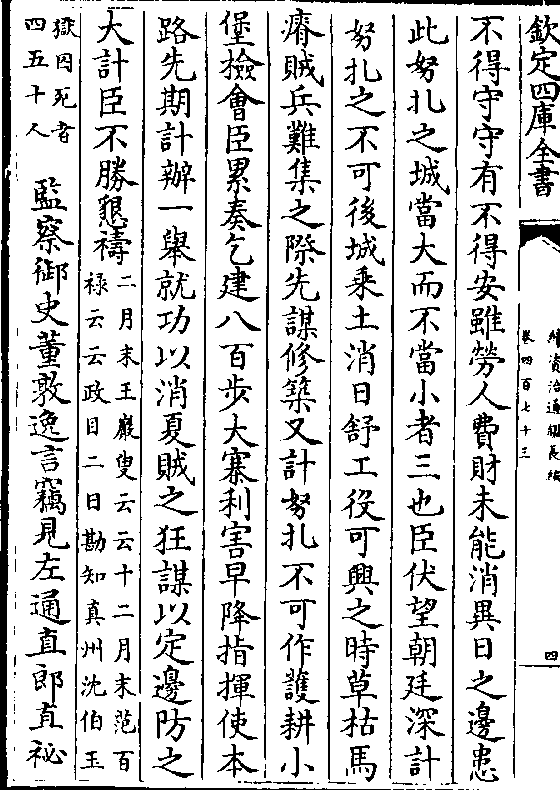 欽定四庫全書
續資治通鑑長編
卷四百七十三
四
不得守守有不得安雖勞人費財未能消異日之邊患
此努扎之城當大而不當小者三也臣伏望朝廷深計
努扎之不可後城乘土消日舒工役可興之時草枯馬
瘠賊兵難集之際先謀修築又計努扎不可作護耕小
堡檢會臣累奏乞建八百步大寨利害早降指揮使本
路先期計辦一舉就功以消夏賊之狂謀以定邊防之
大計臣不勝懇禱
二月末王巖叟云云十二月末范百
祿云云政目二日勘知真州沈伯玉
獄因死者
四五十人
監察御史董敦逸言竊見左通直郎直祕